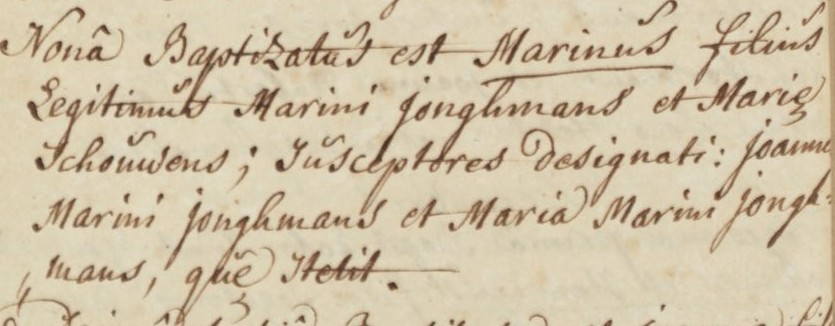 Nonâ Baptizatus est Marinus filius
Legitimus Marini jonghmans et Marię
Schouwens; Susceptores designati: joanne
Marini jonghmans et Maria Marini jongh=
mans, quę Stetit.